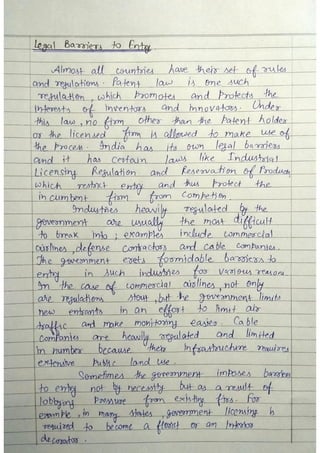 Legal Barriers to Entry
Almost all countries have their set of rules
and regulations. Patent law is one such
regulation, which promotes and protects the
interests of inventors and innovators. Under
this law, no firm other than the Patent holder
or the licensed firm is allowed to make use of
the process. India has its own legal barriers
and it has certain laws like Industrial
Licensing Regulation and Reservation of Product,
which restrict entry and thus protect the
incumbent firm from competion.
Industries heavily regulated by the
government are usually the most difficult
to break into; examples include commercial
airlines, defense contractors and cable companies.
The government erets foormidable barriers to
entry in such industries for various reasons.
In the case of commercial airlines, not only
are regulations stout, but the government limits
new entrants in an effort to limit air
traffic and make monitoring easier. Cable
companies are heavily regulated and limited
in number because their infrastructure requires
extensive public land use.
Sometimes the government imposes barriers
to entry not by necessity but as a result of
lobbying pressure from existing firs. For
example, in many states, government licensing is
required to become a florist or an Interior
decorator.